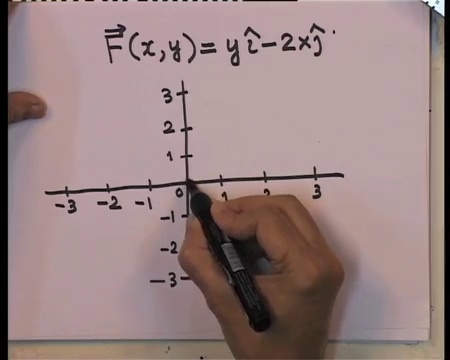 F⃗(x,y) = yî − 2xĵ
3
2
1
-3 -2 -1 0 1 2 3
-1
-2
-3